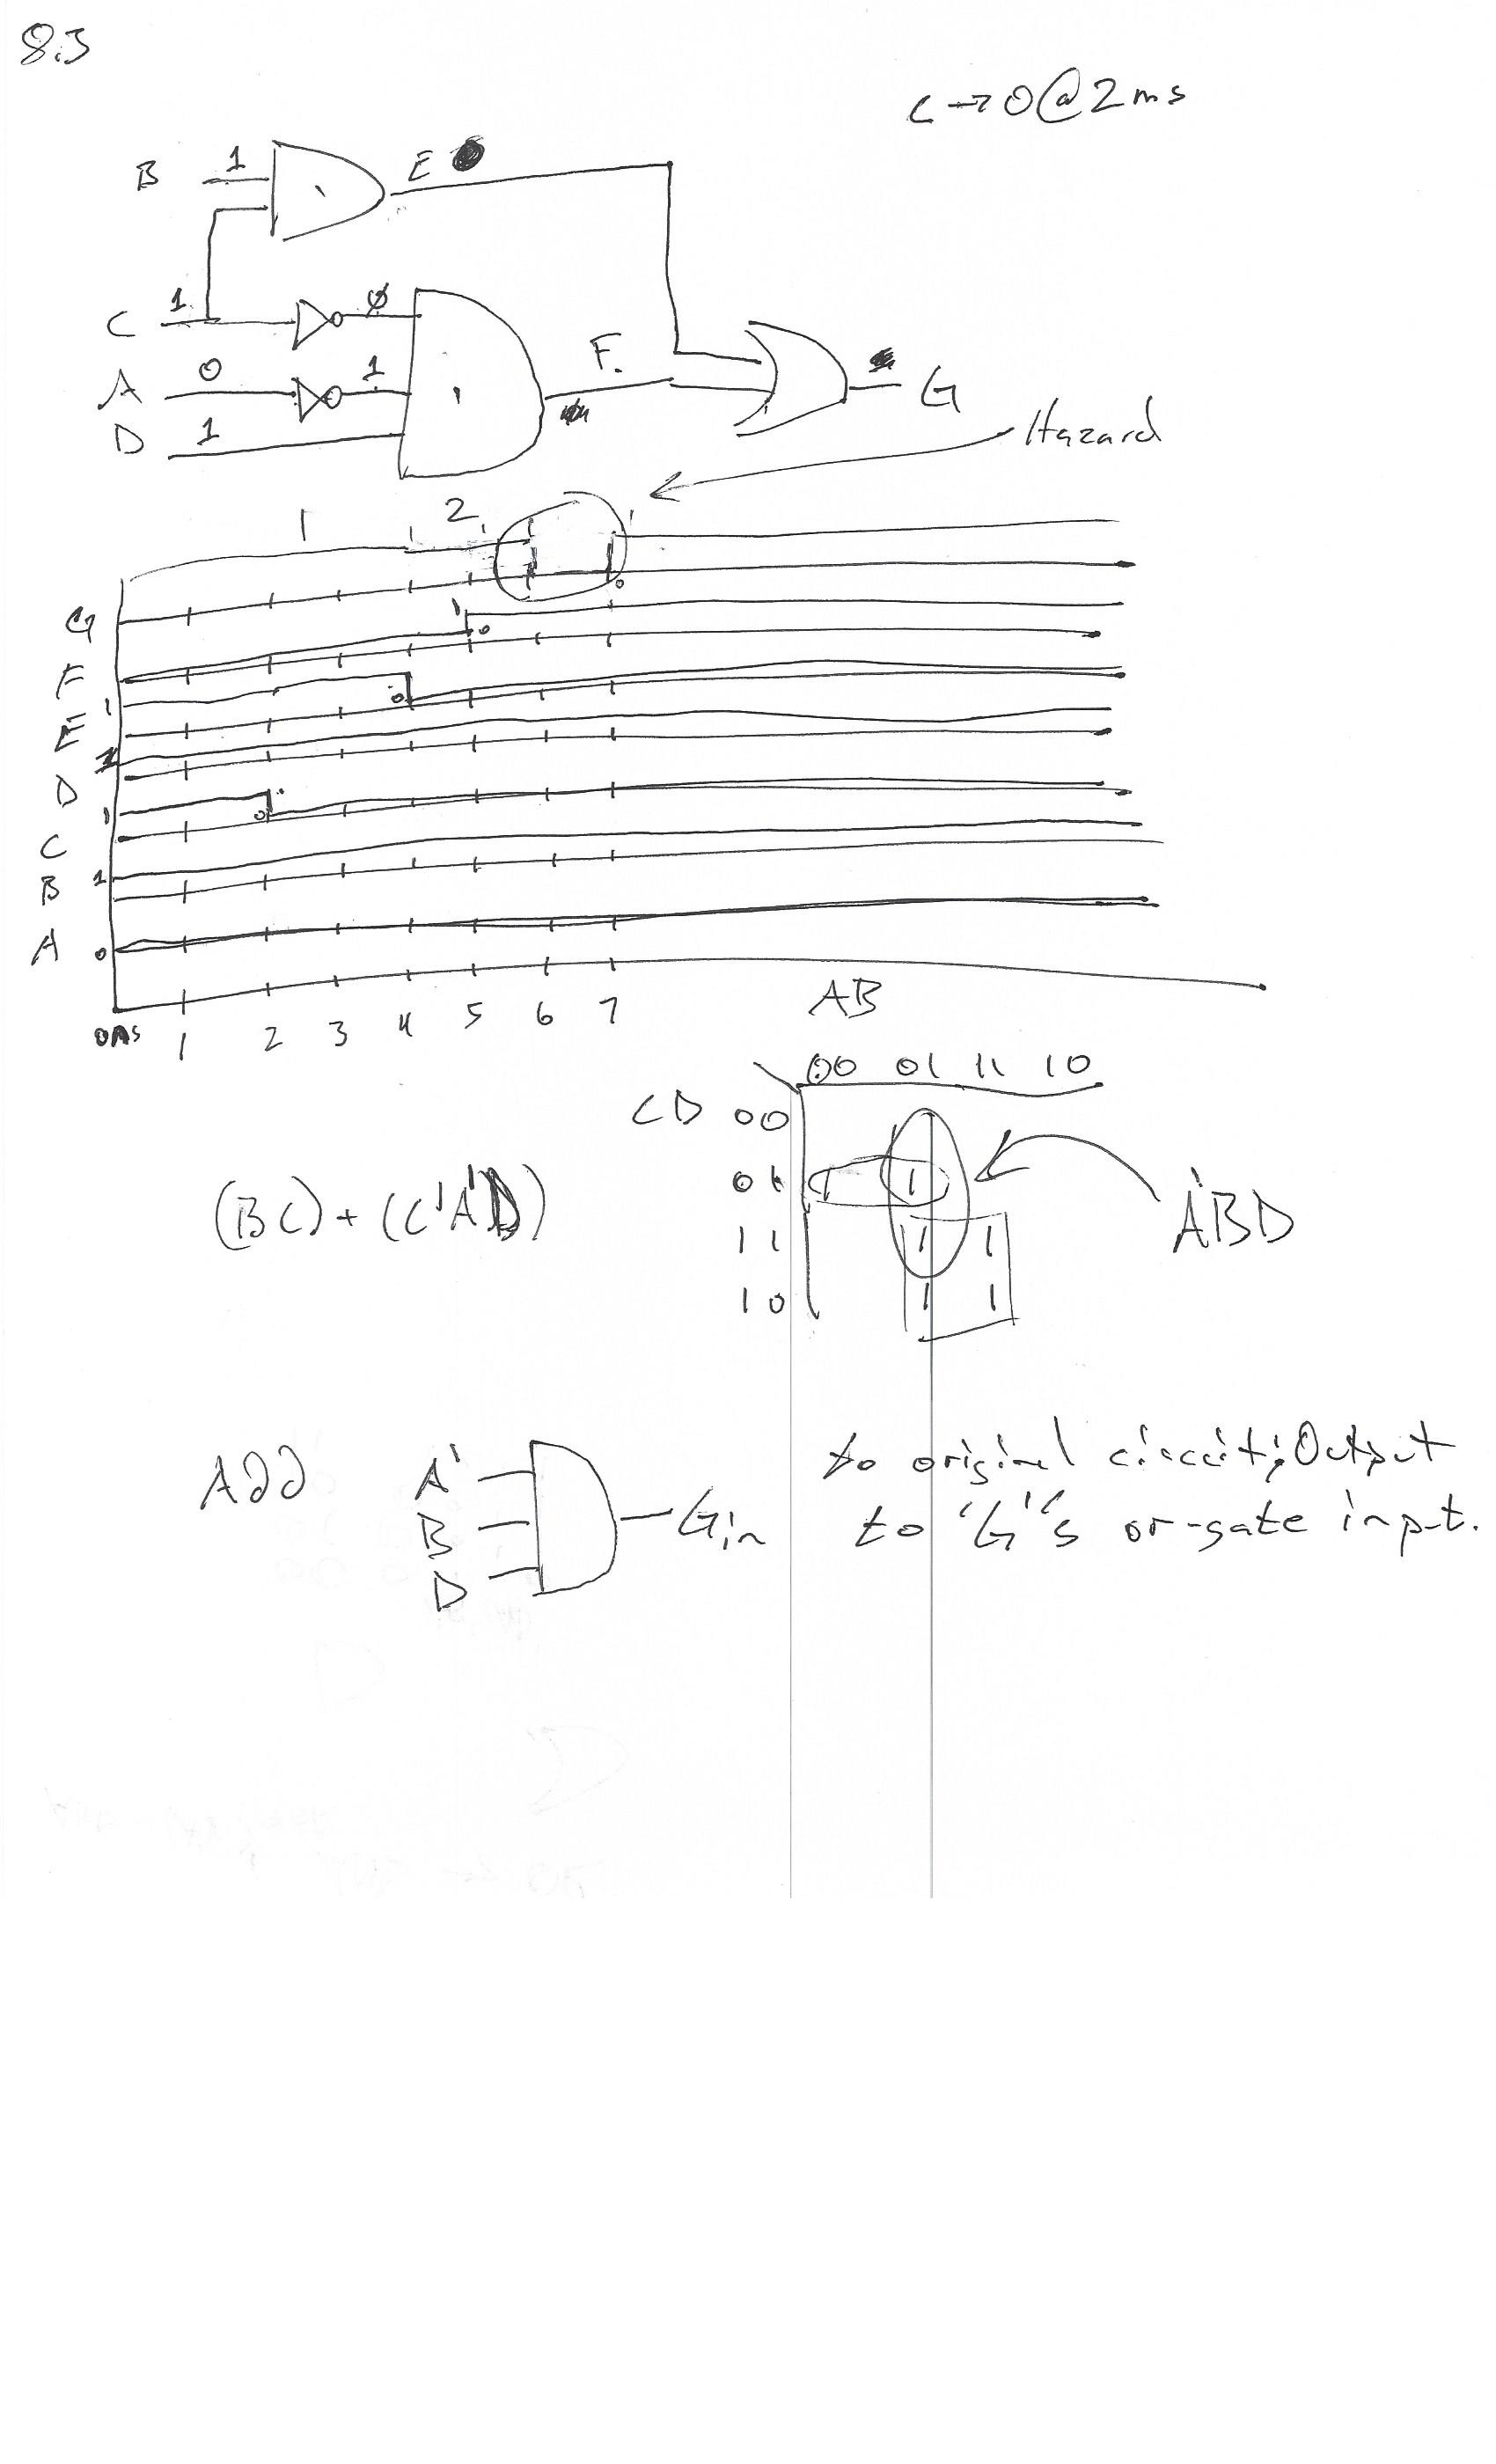 8.3
C → 0 @ 2ms
B 1 E
C 1 0
A 0 1 F G
D 1
Hazard
1 2 1
G 0
F 1 0
E 1 0
D 1
C 1 0
B 1
A 0
0ns 1 2 3 4 5 6 7
AB
00 01 11 10
CD 00
01 1 1
11 1 1
10 1 1
A'BD
(BC) + (C'A'D)
Add A' B D Gin to original circuit; Output
to "G"s or-gate input.